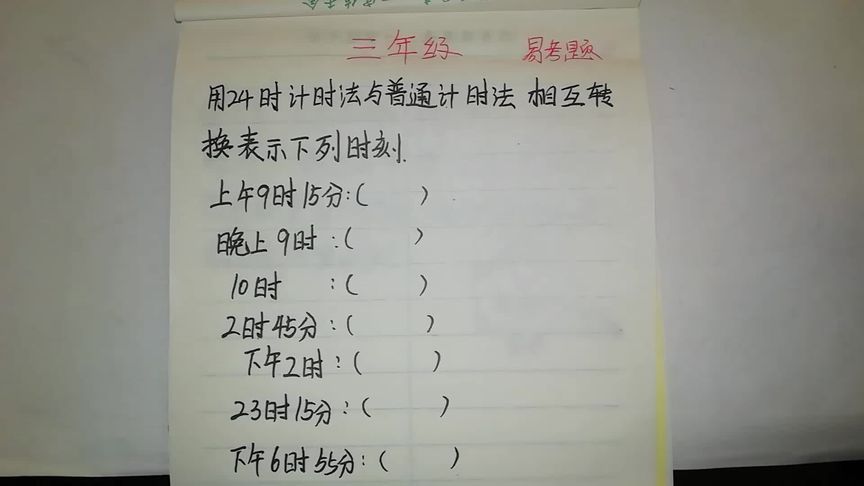 三年级 易考题
用24时计时法与普通计时法 相互转
换表示下列时刻.
上午9时15分:( )
晚上9时:( )
10时:( )
2时45分:( )
下午2时:( )
23时15分:( )
下午6时55分:( )